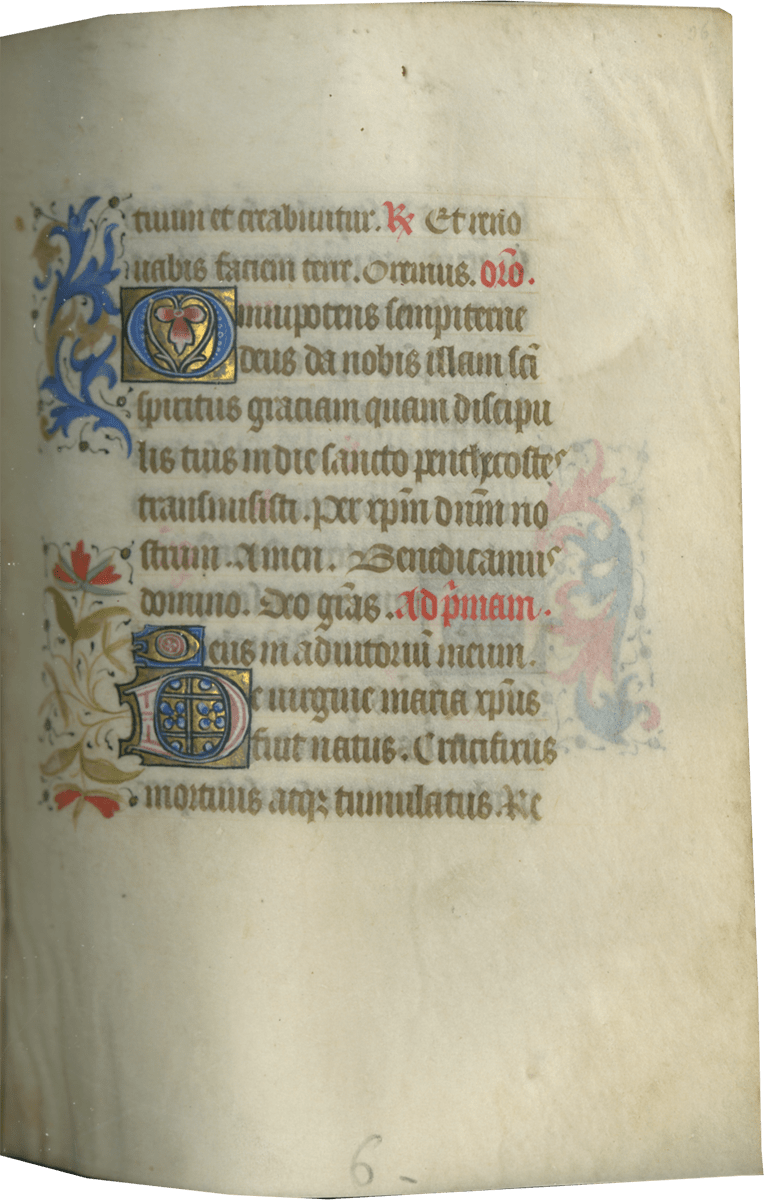 96
tuum et creabuntur. R Et reno
uabis faciem terr. Oremus. orō.
Omnipotens sempiterne
deus da nobis illam scī
spiritus graciam quam discipu
lis tuis in die sancto penthecostes
transmisisti. Per xp̄m dn̄m no
strum. Amen. Benedicamus
domino. Deo grās. Ad p̄mam.
Deus in adiutoriū meum.
De uirgine maria xp̄us
fiut natus. Crucifixus
mortuus atqꝫ tumulatus. Re
6